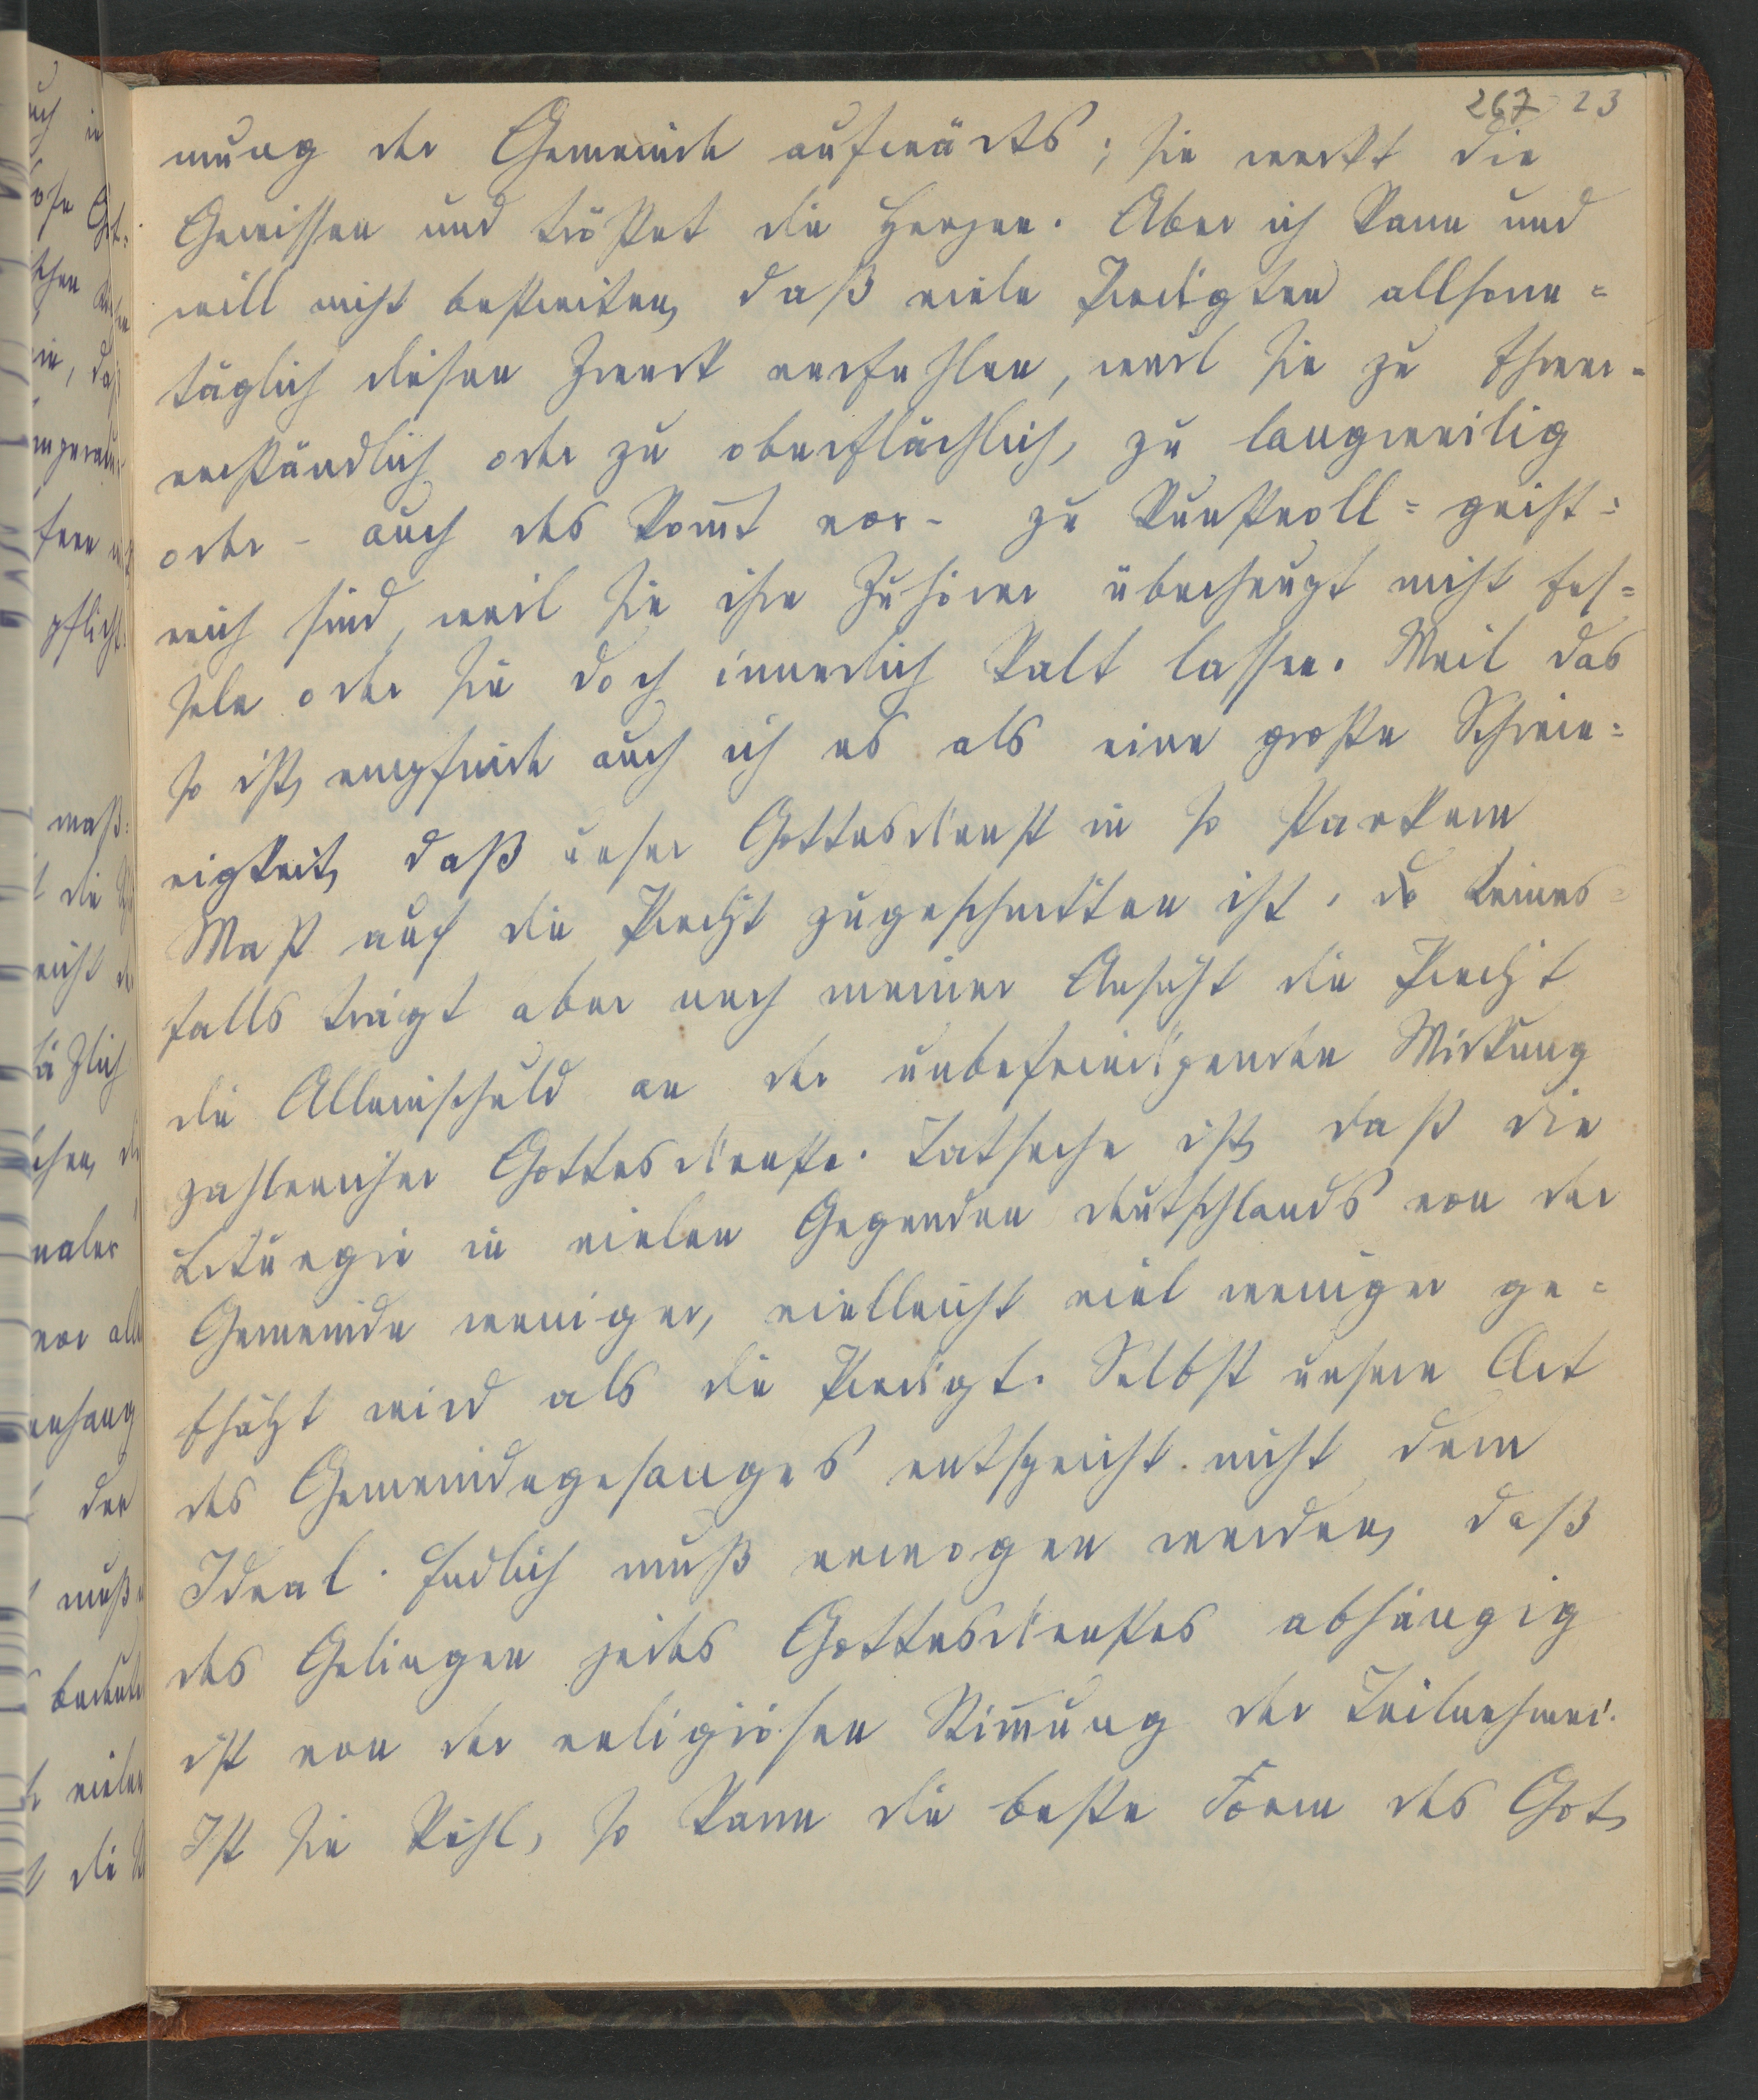 267 23
mung der Gemeinde aufwärts; sie weckt die
Gewissen und tröstet die Herzen. Aber ich kann und
will nicht bestreiten, daß viele Predigten allsonn=
täglich diesen Zweck verfehlen, weil sie zu schwer=
verständlich oder zu oberflächlich, zu langweilig
oder - auch das kom̅t vor - zu kunstvoll=geist=
reich sind, weil sie ihre Zuhörer überhaupt nicht fes=
seln oder sie doch innerlich kalt lassen. Weil das
so ist, empfinde auch ich es als eine große Schwie=
rigkeit, daß unser Gottesdienst in so starkem
Maß auf die Predigt zugeschnitten ist. Keines=
falls trägt aber nach meiner Ansicht die Predigt
die Alleinschuld an der unbefriedigenden Wirkung
zahlreicher Gottesdienste. Tatsache ist, daß die
Liturgie in vielen Gegenden Deutschlands von der
Gemeinde weniger, vielleicht viel weniger ge=
schätzt wird als die Predigt. Selbst unsere Art
des Gemeindegesanges entspricht nicht dem
Ideal. Endlich muß erwogen werden, daß
das Gelingen jedes Gottesdienstes abhängig
ist von der religiösen Stim̅ung der Teilnehmer.
Ist sie kühl, so kann die beste Form des Got